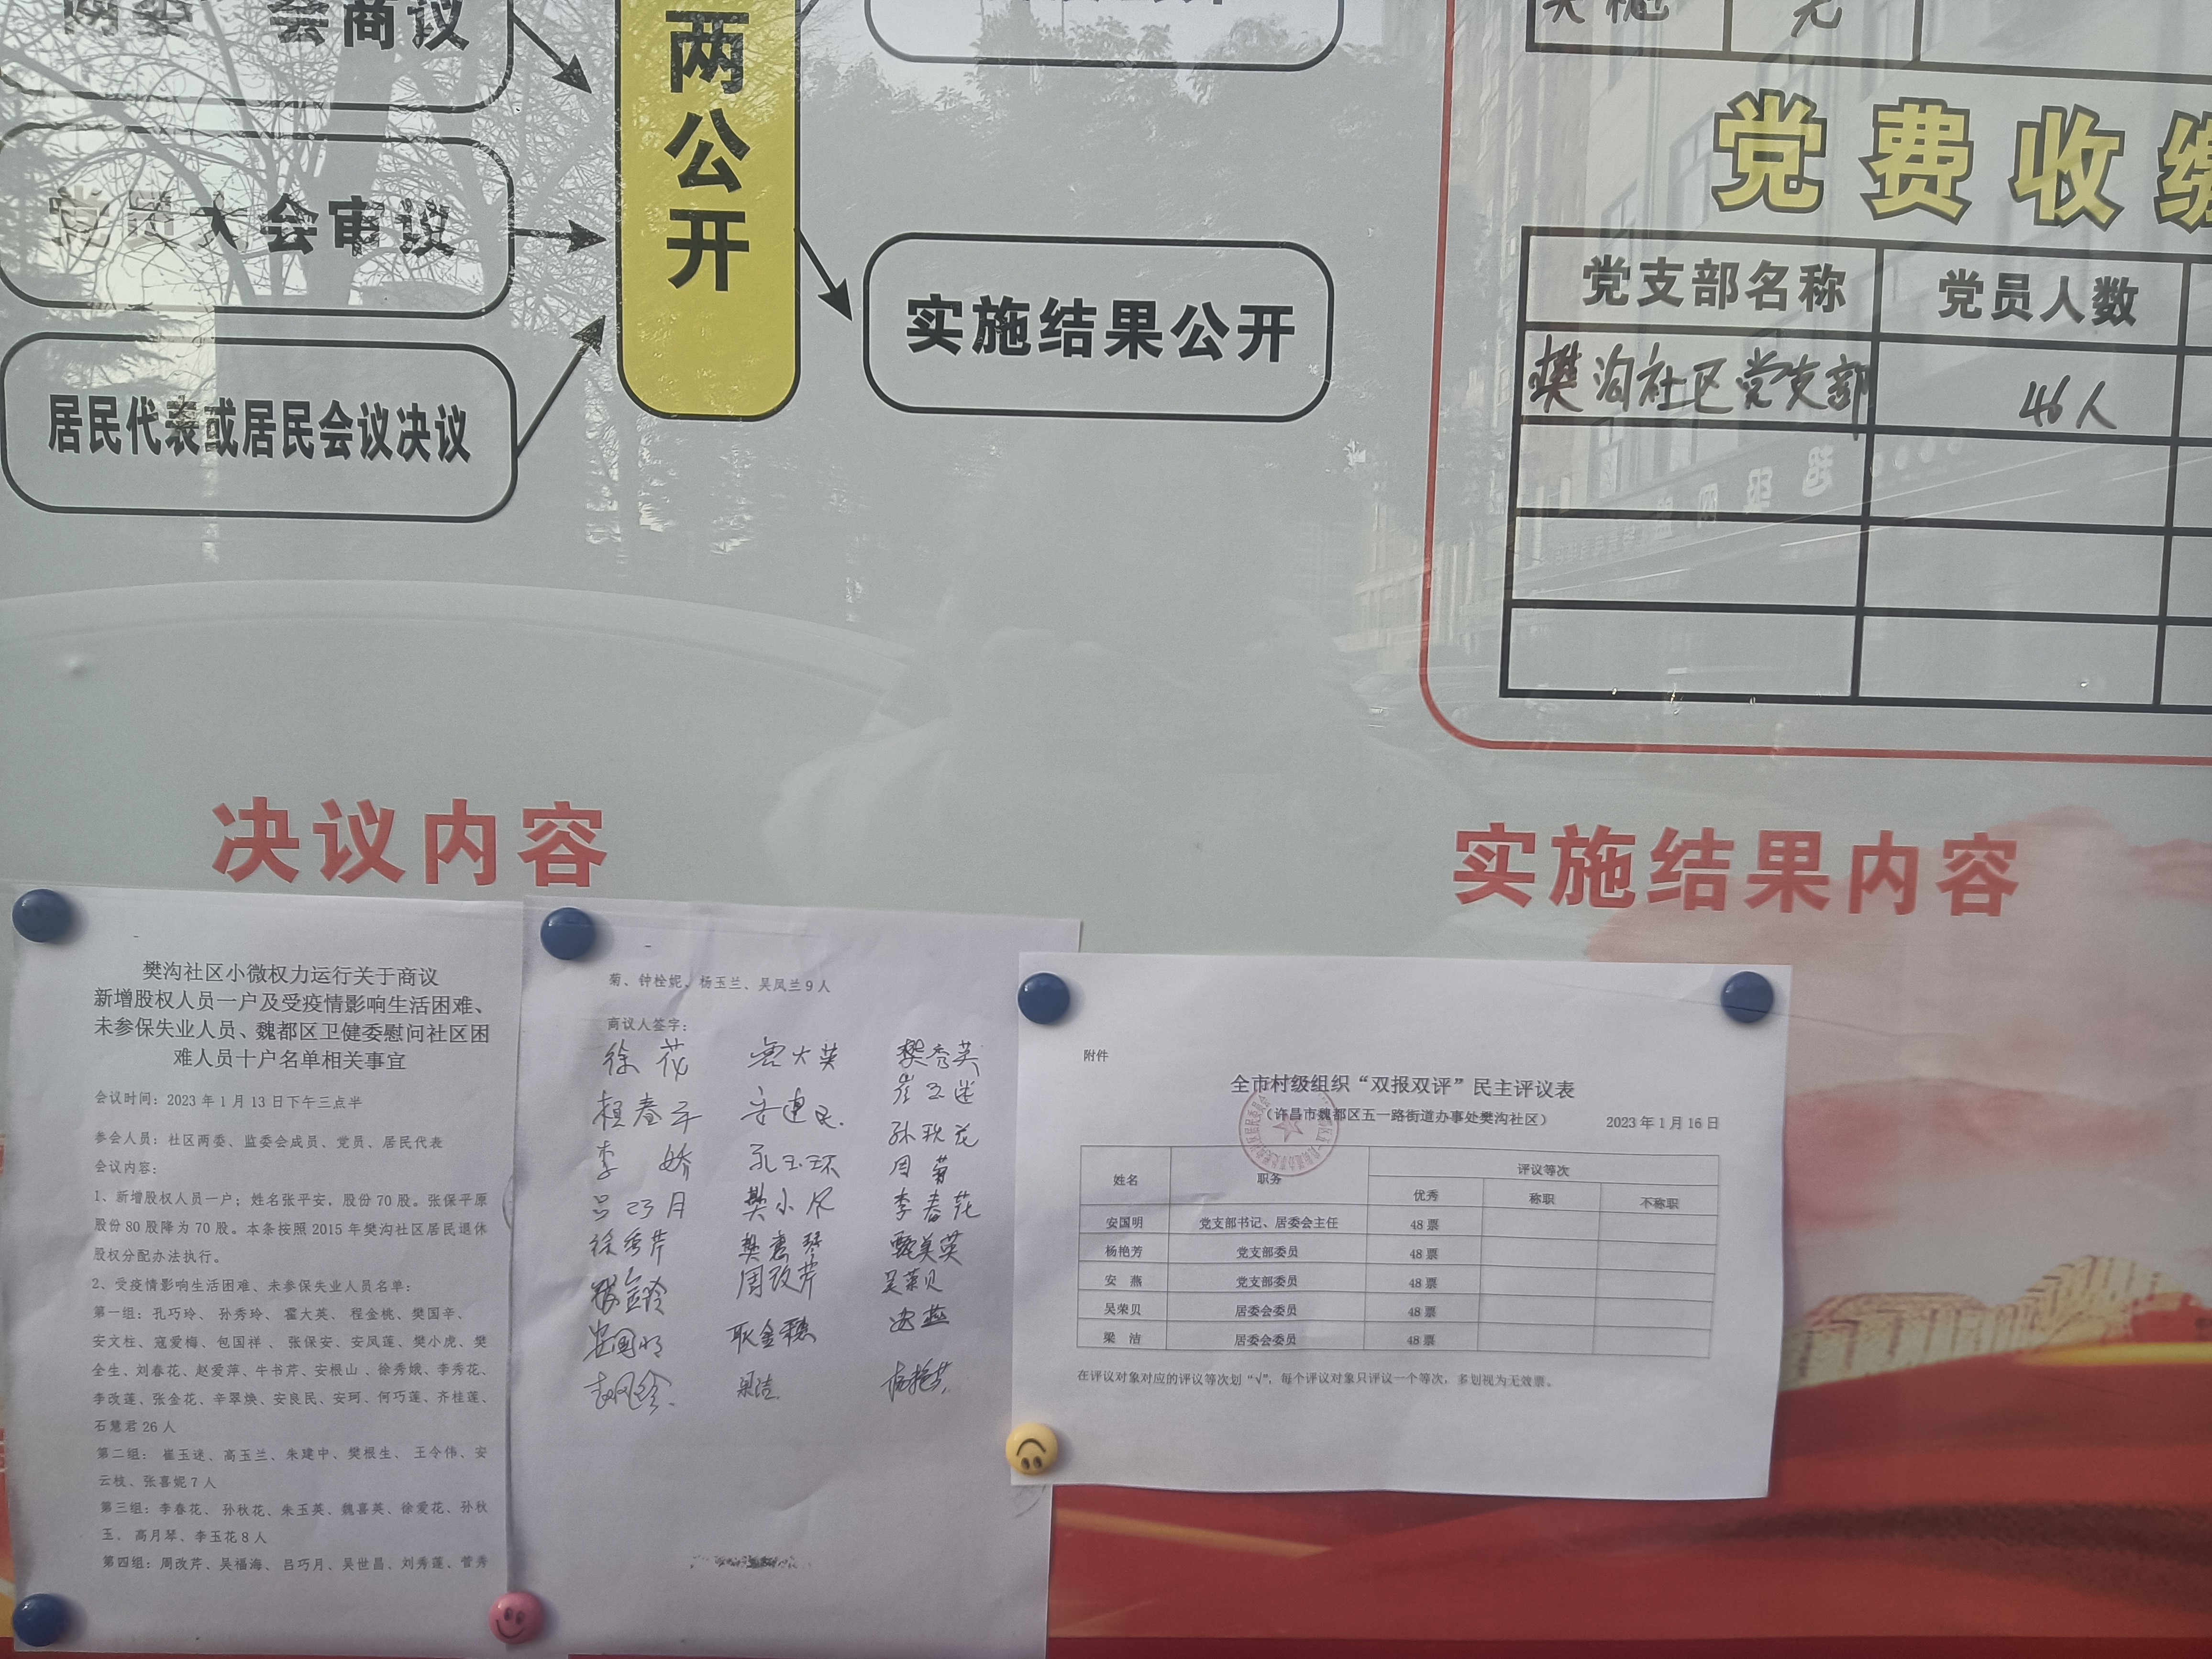 会商议
党员大会审议
居民代表或居民会议决议
两公开
实施结果公开
党费收缴
党支部名称 党员人数
樊沟社区党支部 46人
决议内容
樊沟社区小微权力运行关于商议
新增股权人员一户及受疫情影响生活困难、
未参保失业人员、魏都区卫健委慰问社区困
难人员十户名单相关事宜
会议时间：2023年1月13日下午三点半
参会人员：社区两委、监委会成员、党员、居民代表
会议内容：
1、新增股权人员一户；姓名张平安，股份70股。张保平原
股份80股降为70股。本条按照2015年樊沟社区居民退休
股权分配办法执行。
2、受疫情影响生活困难、未参保失业人员名单：
第一组：孔巧玲、孙秀玲、霍大英、程金桃、樊国辛、
安文柱、寇爱梅、包国祥、张保安、安凤莲、樊小虎、樊
全生、刘春花、赵爱萍、牛书芹、安根山、徐秀娥、李秀花、
李改莲、张金花、辛翠焕、安良民、安珂、何巧莲、齐桂莲、
石慧君26人
第二组：崔玉迷、高玉兰、朱建中、樊根生、王令伟、安
云枝、张喜妮7人
第三组：李春花、孙秋花、朱玉英、魏喜英、徐爱花、孙秋
玉、高月琴、李玉花8人
第四组：周改芹、吴福海、吕巧月、吴世昌、刘秀莲、管秀
菊、钟栓妮、杨玉兰、吴凤兰9人
商议人签字：
徐花 樊秀英
崔玉迷
孙秋花
李娇 孔玉环 周菊
吕巧月 樊小凤 李春花
徐秀芹 甄美英
周改芹 吴荣贝
安国明 耿金穗 安燕
梁洁 杨艳芳
实施结果内容
附件
全市村级组织“双报双评”民主评议表
（许昌市魏都区五一路街道办事处樊沟社区） 2023年1月16日
姓名 职务 评议等次
优秀 称职 不称职
安国明 党支部书记、居委会主任 48票
杨艳芳 党支部委员 48票
安 燕 党支部委员 48票
吴荣贝 居委会委员 48票
梁 洁 居委会委员 48票
在评议对象对应的评议等次划“√”，每个评议对象只评议一个等次，多划视为无效票。